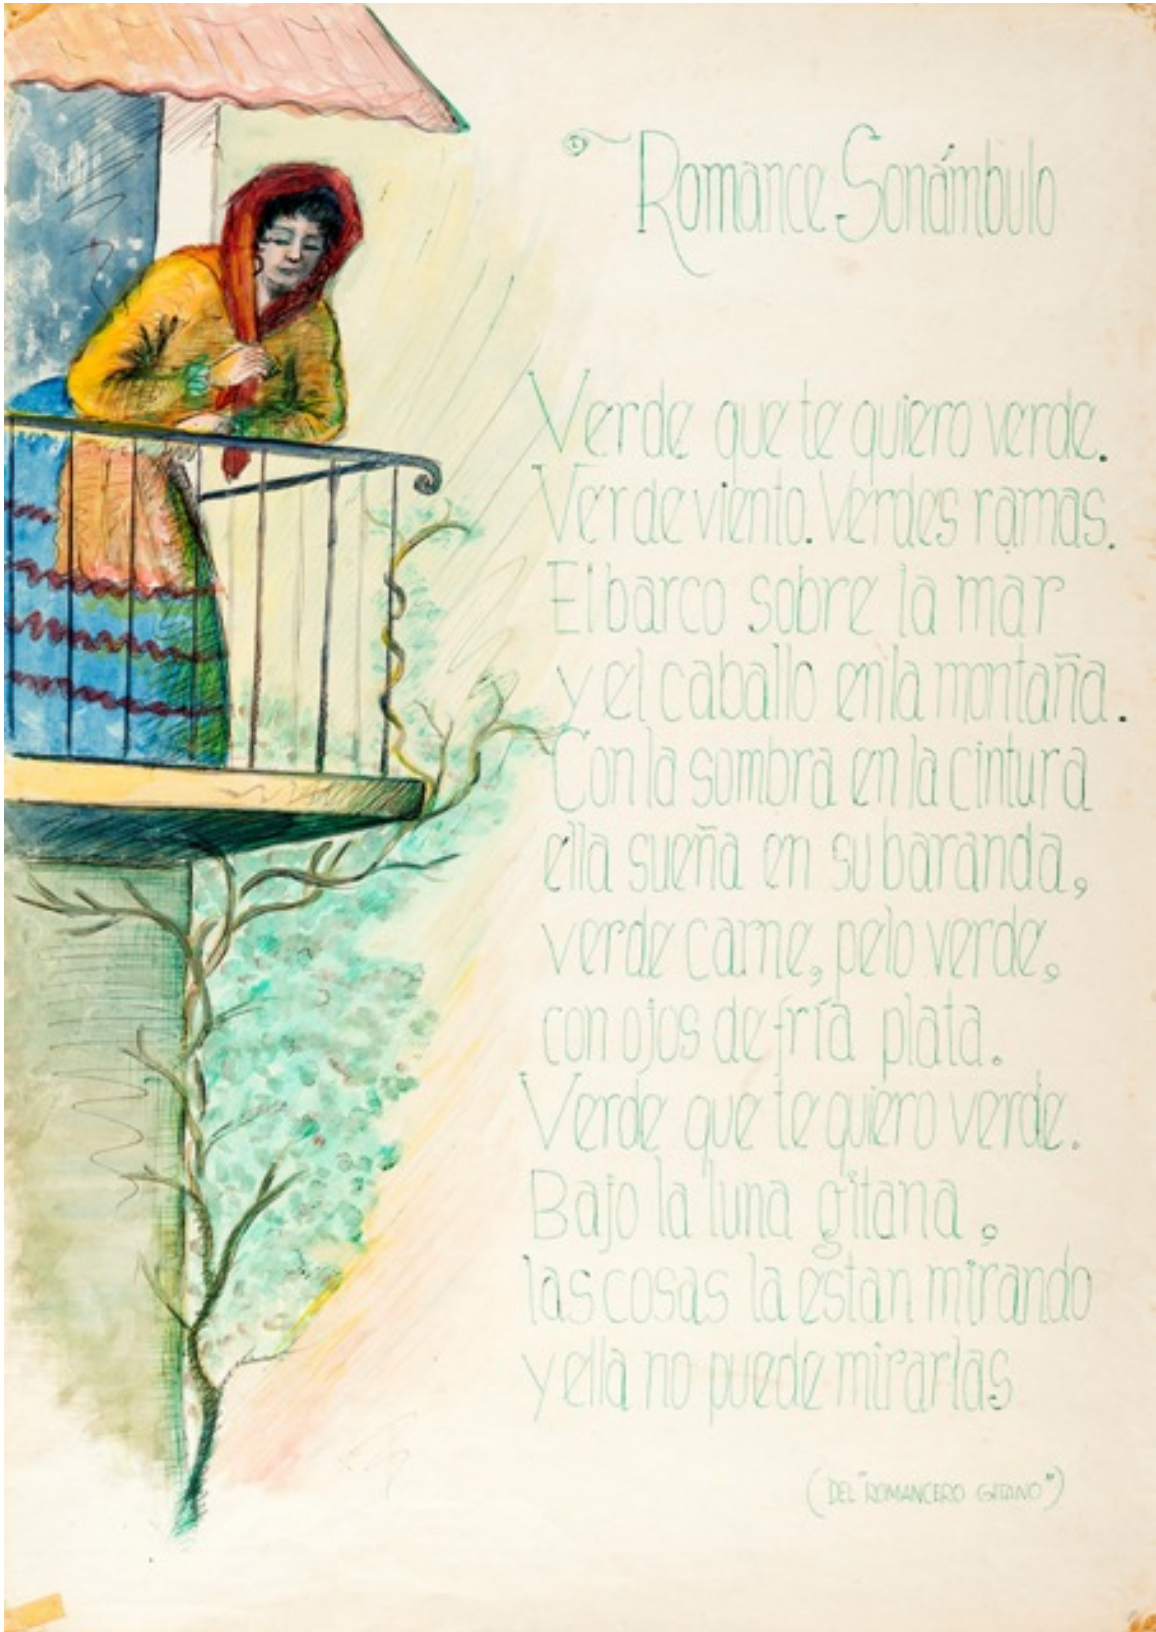 Romance Sonámbulo
Verde que te quiero verde.
Verde viento. Verdes ramas.
El barco sobre la mar
y el caballo en la montaña.
Con la sombra en la cintura
ella sueña en su baranda,
verde carne, pelo verde,
con ojos de fría plata.
Verde que te quiero verde.
Bajo la luna gitana,
las cosas la estan mirando
y ella no puede mirarlas
(DEL "ROMANCERO GITANO")